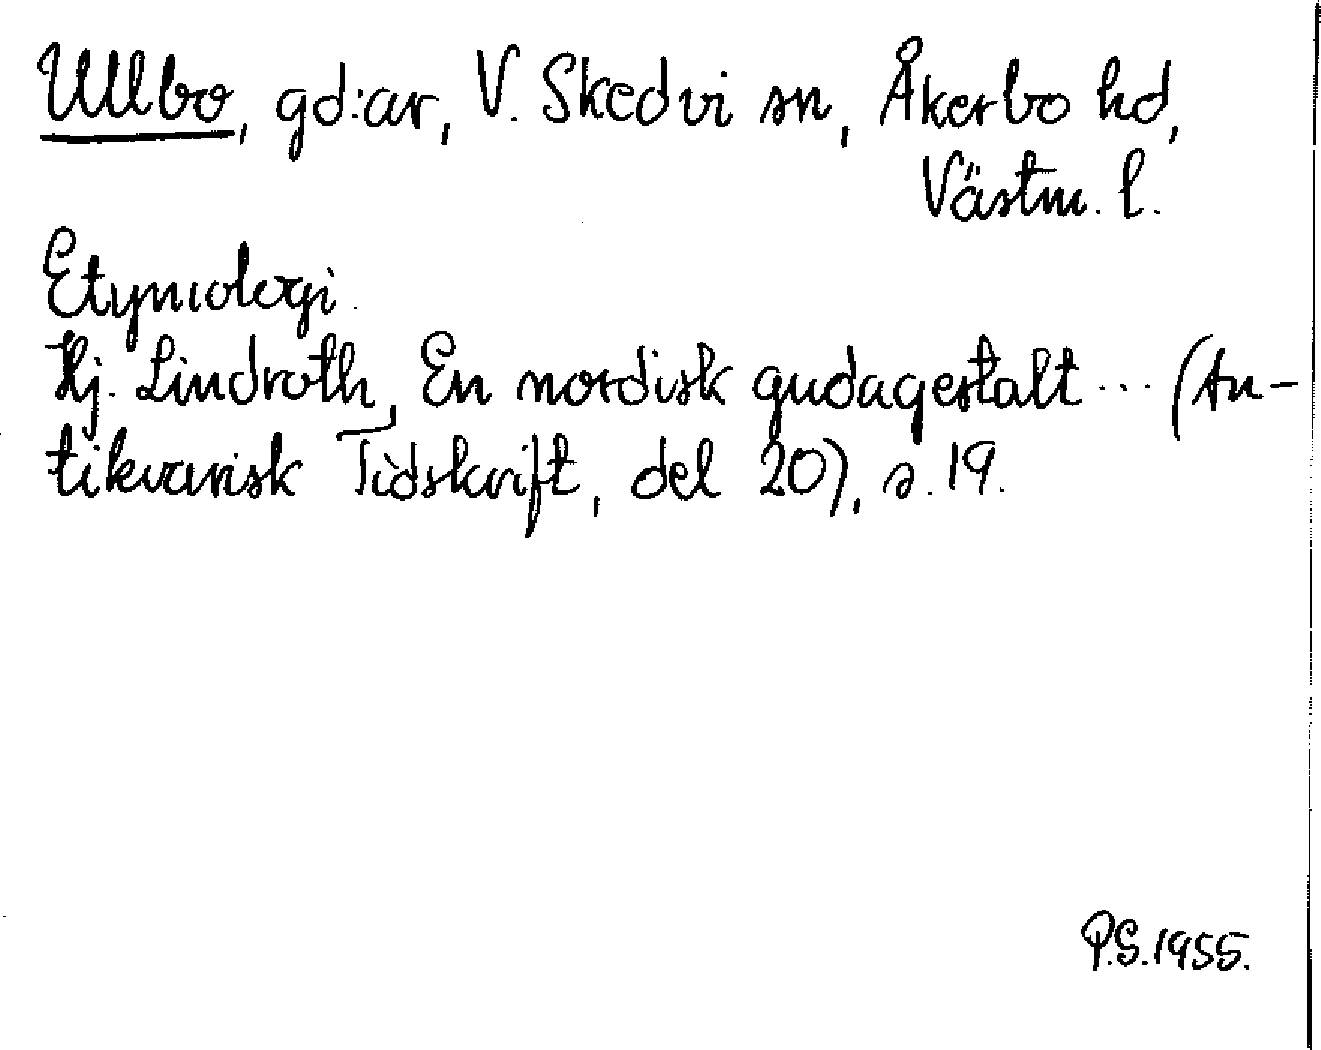 Ullbo, gd:ar, V. Skedvi sn, Åkerbo hd,
Västm. l.
Etymologi.
Hj. Lindroth, En nordisk gudagestalt... (An-
tikvarisk Tidskrift, del 20), s. 19.
P.S. 1955.